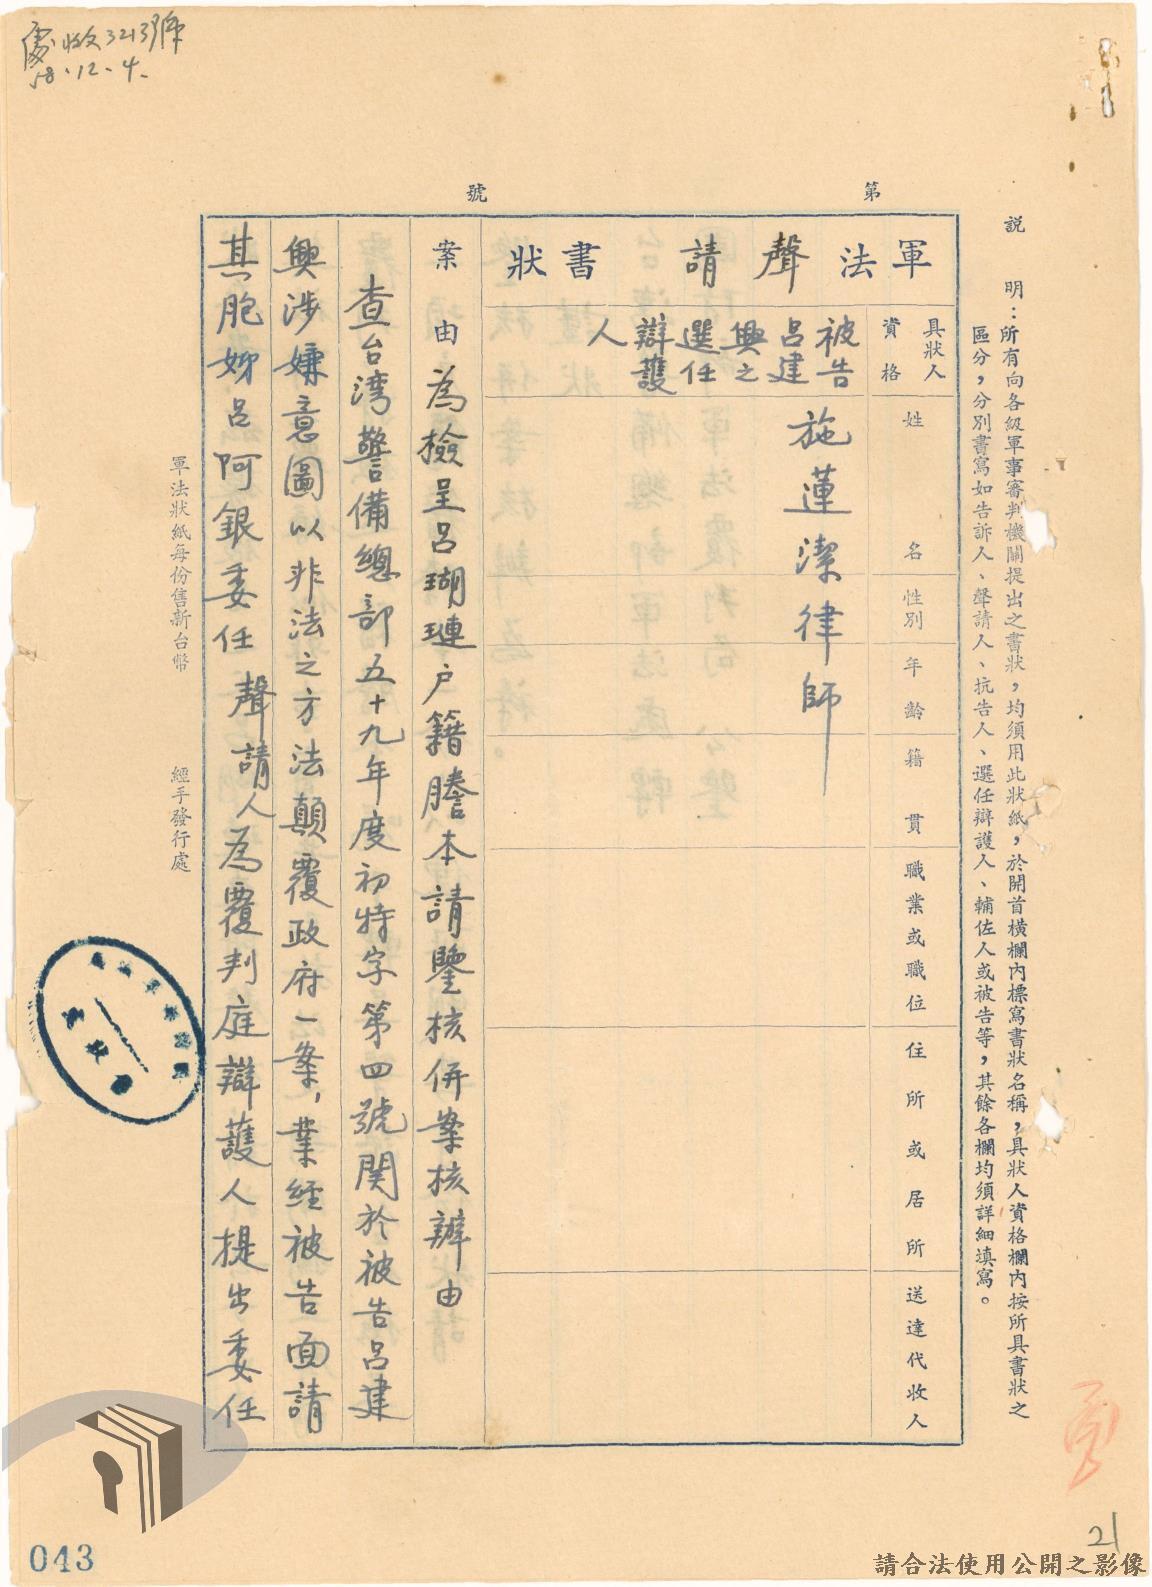 處收文3213號
58.12.4.
第　號
說　明：所有向各級軍事審判機關提出之書狀，均須用此狀紙，於開首橫欄內標寫書狀名稱，具狀人資格欄內按所具書狀之
區分，分別書寫如告訴人、聲請人、抗告人、選任辯護人、輔佐人或被告等，其餘各欄均須詳細填寫。
軍法聲請書狀
具狀人
資格
姓名
性別
年齡
籍貫
職業或職位
住所或居所
送達代收人
被告
呂建
興之
選任
辯護
人
施蓮潔律師
案由為檢呈呂瑚璉户籍謄本請鑒核併案核辦由
查台灣警備總部五十九年度初特字第四號関於被告呂建
興涉嫌意圖以非法之方法顛覆政府一案，業經被告面請
其胞姊呂阿銀委任聲請人為覆判庭辯護人提出委任
軍法狀紙每份售新台幣　經手發行處
21
043
請合法使用公開之影像